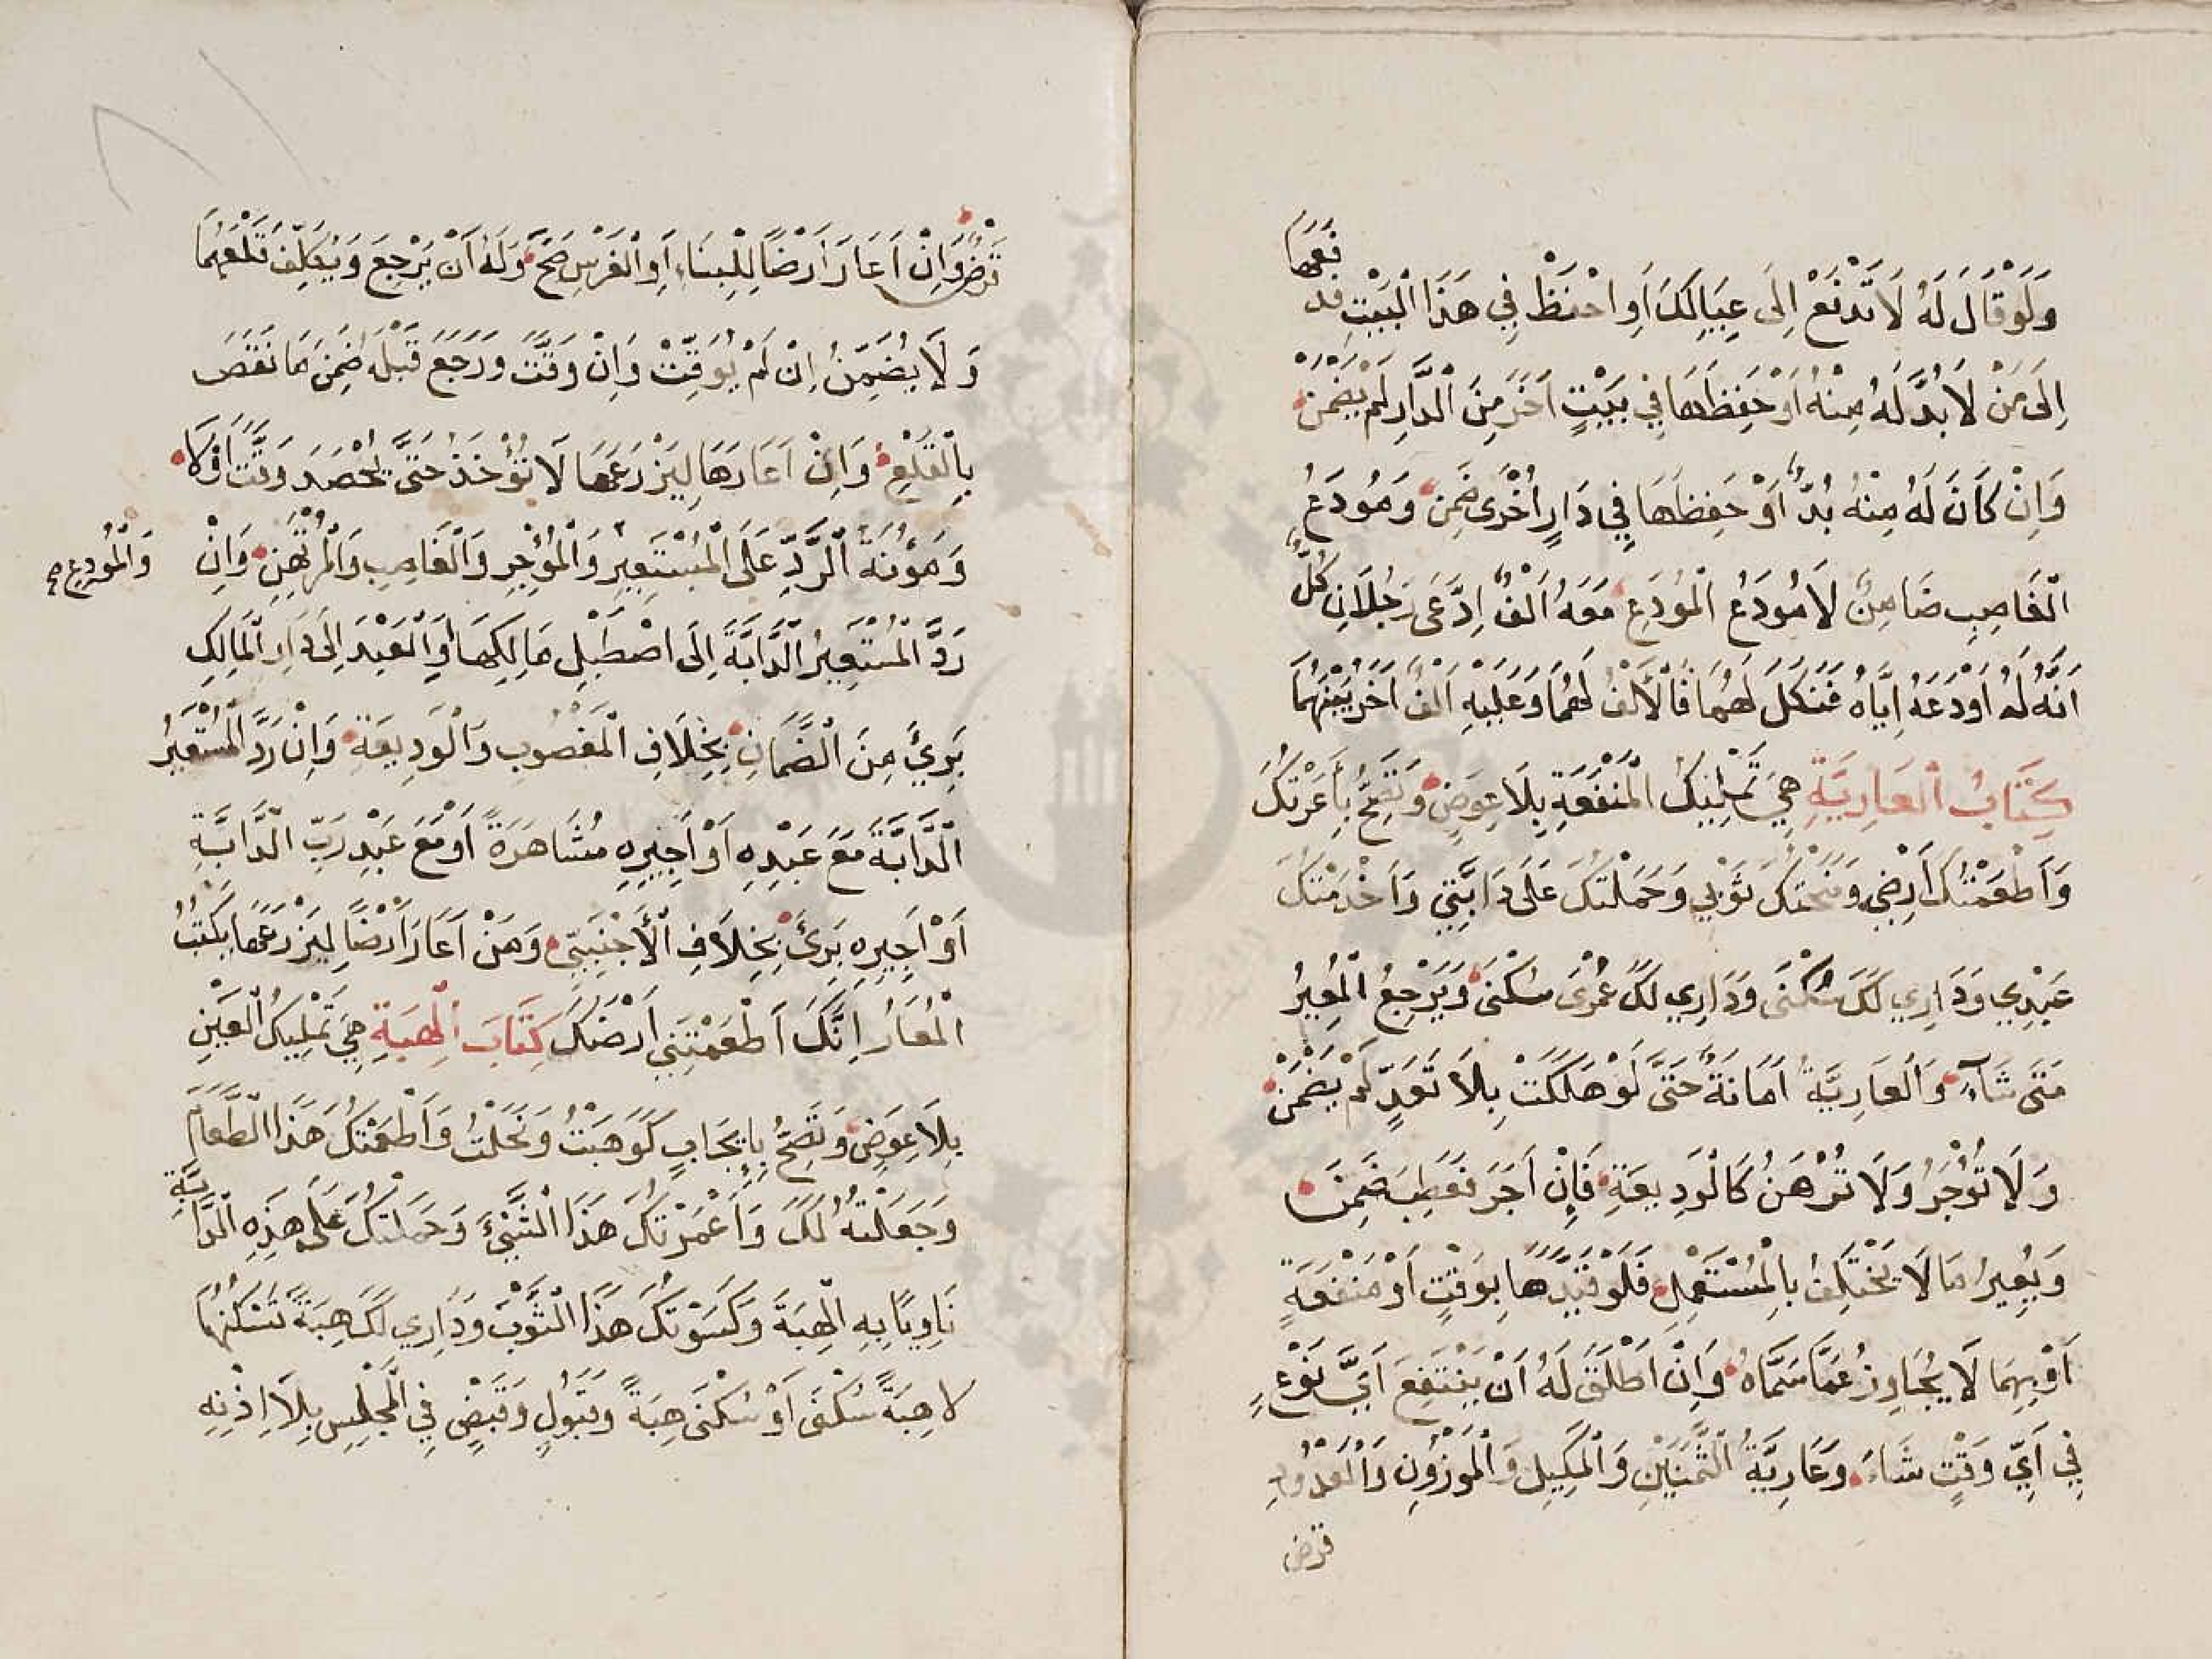 وَلَوْ قَالَ لَهُ لَا تَدْفَعْ اِلَى عِيَالِكَ اَوِ احْفَظْ فِي هَذَا الْبَيْتِ فَدَفَعَهَا
اِلَى مَنْ لَا بُدَّ لَهُ مِنْهُ اَوْ حَفِظَهَا فِي بَيْتٍ آخَرَ مِنَ الدَّارِ لَمْ يَضْمَنْ
وَاِنْ كَانَ لَهُ مِنْهُ بُدٌّ اَوْ حَفِظَهَا فِي دَارٍ اُخْرَى ضَمِنَ وَمُودَعُ
الْغَاصِبِ ضَامِنٌ لَا مُودَعُ الْمُودَعِ مَعَهُ اَلْفٌ اِدَّعَى رَجُلَانِ كُلٌّ
اَنَّهُ لَهُ اَوْدَعَهُ اِيَّاهُ فَنَكَلَ لَهُمَا فَالْأَلْفُ لَهُمَا وَعَلَيْهِ اَلْفٌ آخَرُ بَيْنَهُمَا
كِتَابُ الْعَارِيَّةِ هِيَ تَمْلِيكُ الْمَنْفَعَةِ بِلَا عِوَضٍ وَتَصِحُّ بِأَعَرْتُكَ
وَاَطْعَمْتُكَ اَرْضِي وَمَنَحْتُكَ ثَوْبِي وَحَمَلْتُكَ عَلَى دَابَّتِي وَاَخْدَمْتُكَ
عَبْدِي وَدَارِي لَكَ سُكْنَى وَدَارِي لَكَ عُمْرَى سُكْنَى وَيَرْجِعُ الْمُعِيرُ
مَتَى شَآءَ وَالْعَارِيَّةُ اَمَانَةٌ حَتَّى لَوْ هَلَكَتْ بِلَا تَعَدٍّ لَمْ يَضْمَنْ
وَلَا تُؤْجَرُ وَلَا تُرْهَنُ كَالْوَدِيعَةِ فَاِنْ اَجَرَ فَعَطِبَ ضَمِنَ
وَيُعِيرُ مَا لَا يَخْتَلِفُ بِالْمُسْتَعْمِلِ فَلَوْ قَيَّدَهَا بِوَقْتٍ اَوْ مَنْفَعَةٍ
اَوْ بِهِمَا لَا يُجَاوِزُ عَمَّا سَمَّاهُ وَاِنْ اَطْلَقَ لَهُ اَنْ يَنْتَفِعَ اَيَّ نَوْعٍ
فِي اَيِّ وَقْتٍ شَاءَ وَعَارِيَّةُ الثَّمَنَيْنِ وَالْمَكِيلِ وَالْمَوْزُونِ وَالْمَعْدُودِ
قرض
قَرْضٌ وَاِنْ اَعَارَ اَرْضًا لِلْبِنَاءِ اَوِ الْغَرْسِ صَحَّ وَلَهُ اَنْ يَرْجِعَ وَيُكَلِّفَ قَلْعَهُمَا
وَلَا يُضَمَّنُ اِنْ لَمْ يُوَقِّتْ وَاِنْ وَقَّتَ وَرَجَعَ قَبْلَهُ ضَمِنَ مَا نَقَصَ
بِالْقَلْعِ وَاِنْ اَعَارَهَا لِيَزْرَعَهَا لَا تُؤْخَذُ حَتَّى يُحْصَدَ وَقَّتَ اَوْ لَا
وَمَؤُنَةُ الرَّدِّ عَلَى الْمُسْتَعِيرِ وَالْمُؤْجِرِ وَالْغَاصِبِ وَالْمُرْتَهِنِ وَاِنْ
وَالْمُودِعِ صح
رَدَّ الْمُسْتَعِيرُ الدَّابَّةَ اِلَى اصْطَبْلِ مَالِكِهَا اَوِ الْعَبْدَ اِلَى دَارِ الْمَالِكِ
بَرِئَ مِنَ الضَّمَانِ بِخِلَافِ الْمَغْصُوبِ وَالْوَدِيعَةِ وَاِنْ رَدَّ الْمُسْتَعِيرُ
الدَّابَّةَ مَعَ عَبْدِهِ اَوْ اَجِيرِهِ مُشَاهَرَةً اَوْ مَعَ عَبْدِ رَبِّ الدَّابَّةِ
اَوْ اَجِيرِهِ بَرِئَ بِخِلَافِ الْأَجْنَبِيِّ وَمَنْ اَعَارَ اَرْضًا لِيَزْرَعَهَا يَكْتُبُ
الْمُعَارُ اِنَّكَ اَطْعَمْتَنِي اَرْضَكَ كِتَابُ الْهِبَةِ هِيَ تَمْلِيكُ الْعَيْنِ
بِلَا عِوَضٍ وَتَصِحُّ بِاِيجَابٍ كَوَهَبْتُ وَنَحَلْتُ وَاَطْعَمْتُكَ هَذَا الطَّعَامَ
وَجَعَلْتُهُ لَكَ وَاَعْمَرْتُكَ هَذَا الشَّيْئَ وَحَمَلْتُكَ عَلَى هَذِهِ الدَّابَّةِ
نَاوِيًا بِهِ الْهِبَةَ وَكَسَوْتُكَ هَذَا الثَّوْبَ وَدَارِي لَكَ هِبَةً تَسْكُنُهَا
لَا هِبَةً سُكْنَى اَوْ سُكْنَى هِبَةً وَقَبُولٍ وَقَبْضٍ فِي الْمَجْلِسِ بِلَا اِذْنِهِ